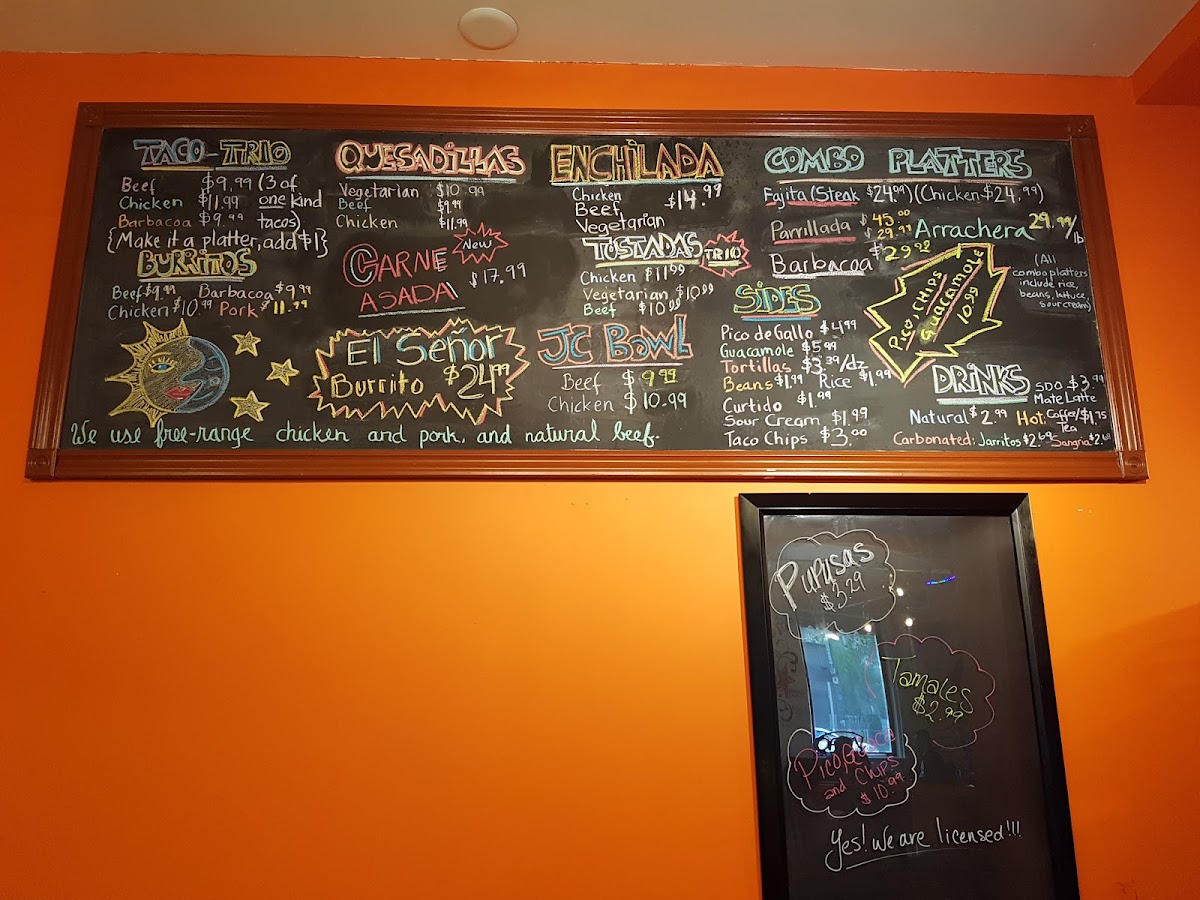 TACO-TRIO
Beef $9.99 (3 of
Chicken $11.99 one kind
Barbacoa $9.99 tacos)
{Make it a platter, add $1}
BURRITOS
Beef $9.99 Barbacoa $9.99
Chicken $10.99 Pork $11.99
QUESADILLAS
Vegetarian $10.99
Beef $9.99
Chicken $11.99
CARNE New
ASADA $17.99
El Señor
Burrito $24.99
ENCHILADA
Chicken $14.99
Beef
Vegetarian
TOSTADAS TRIO
Chicken $11.99
Vegetarian $10.99
Beef $10.99
JC BOWL
Beef $9.99
Chicken $10.99
COMBO PLATTERS
Fajita (Steak $24.99) (Chicken $24.99)
Parrillada $45.00
$29.99
Arrachera 29.99/lb
Barbacoa $29.99
(All
combo platters
include rice,
beans, lettuce,
sour cream)
Pico, Chips
Guacamole
10.99
SIDES
Pico de Gallo $4.99
Guacamole $5.99
Tortillas $3.39/dz
Beans $1.99 Rice $1.99
Curtido $1.99
Sour Cream $1.99
Taco Chips $3.00
DRINKS
$3.99
Mate Latte
Natural $2.99 Hot: Coffee/Tea $1.75
Carbonated: Jarritos $2.69 Sangria $2.69
We use free-range chicken and pork, and natural beef.
Pupusas
$3.29
Tamales
$2.99
Pico,
and Chips
$10.99
Yes! We are licensed!!!